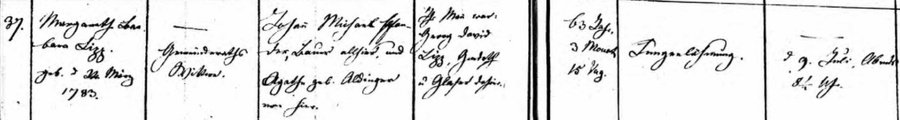 37.
Margareth Bar-
bara Lizz.
geb. d 24 März
1783.
Gemeinderaths
Wittwe.
Johann Michael
der, Bauer allhier, und
Agatha geb. Aldinger
von hier.
Ihr Mann war:
Georg David
Lizz,
u Glaser dahier.
63 Jahr.
3 Monath
15 Tag.
Lungenlähmung.
d 9. Juli, Abends
8½ Uhr.